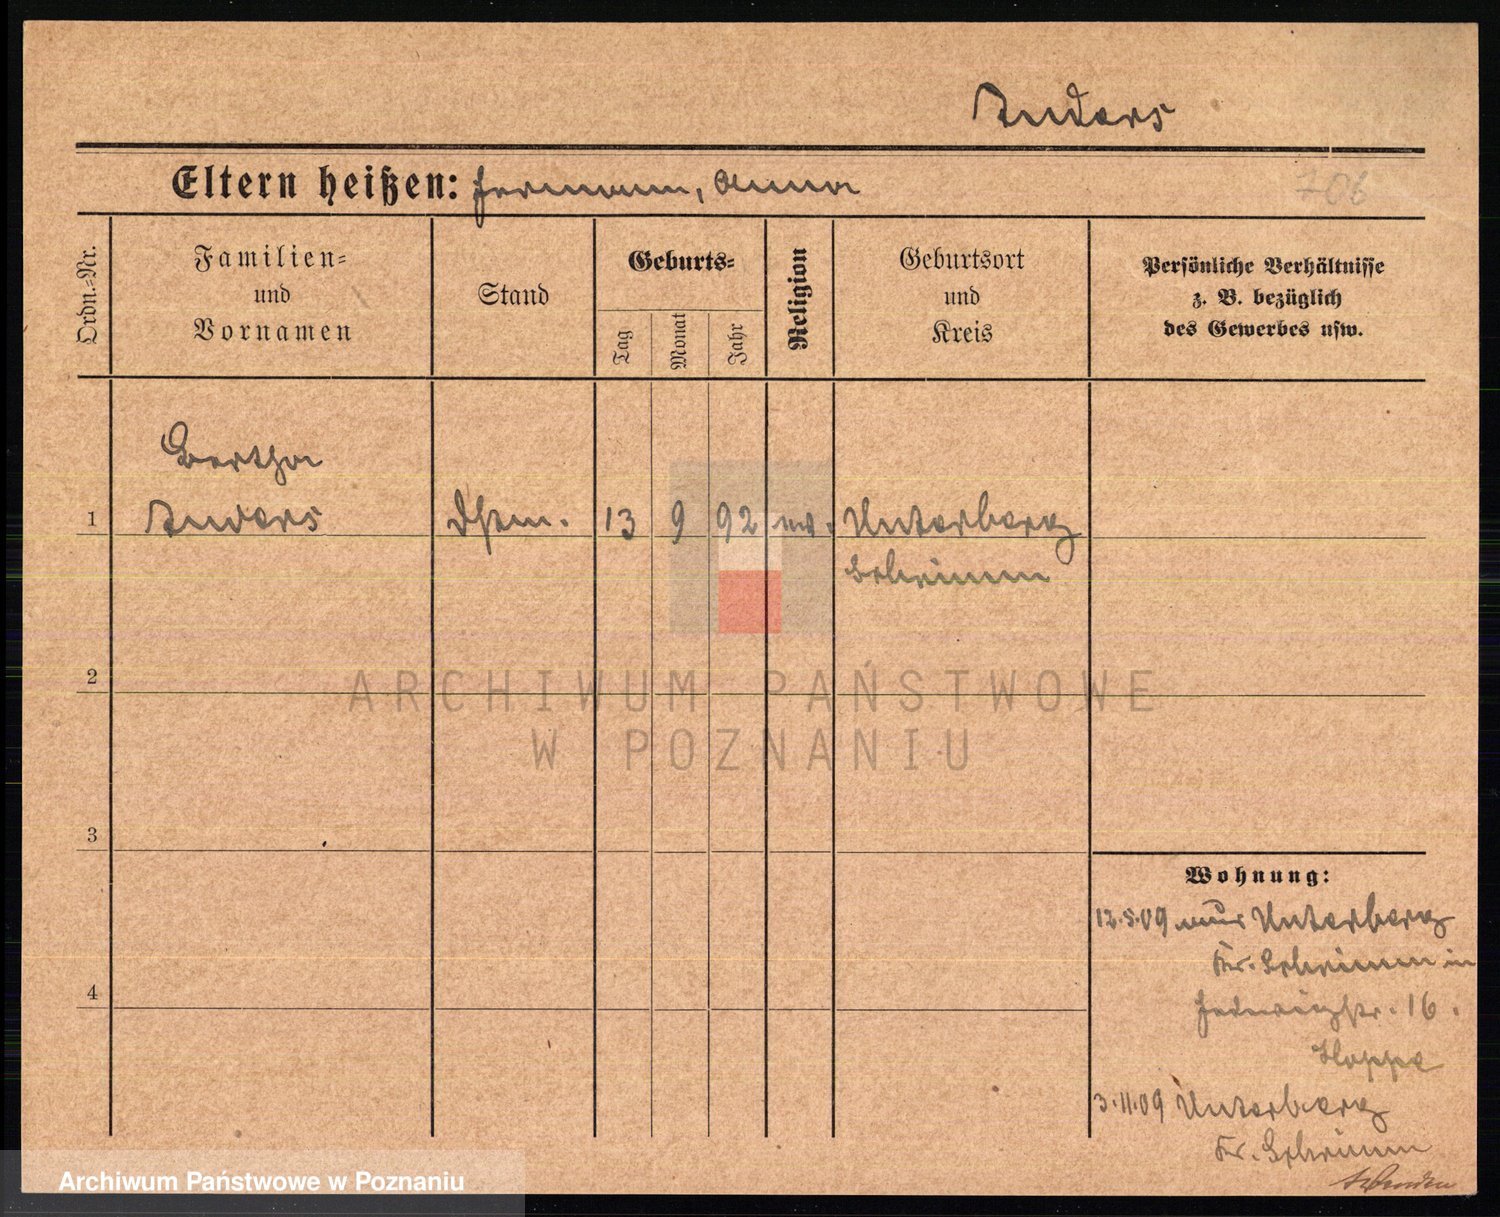 Anders
Eltern heißen: Hermann, Anna
706
Ordn.-Nr.
Familien-
und
Vornamen
Stand
Geburts-
Tag
Monat
Jahr
Religion
Geburtsort
und
Kreis
Persönliche Verhältnisse
z. B. bezüglich
des Gewerbes usw.
Bertha
1 Anders Dstm. 13 9 92 ev. Unterberg
Schrimm
2
ARCHIWUM PAŃSTWOWE
W POZNANIU
3
Wohnung:
12.5.09 aus Unterberg
Kr. Schrimm in
4
Hedwigstr. 16.
Hoppe
3.11.09 Unterberg
Kr. Schrimm
Archiwum Państwowe w Poznaniu